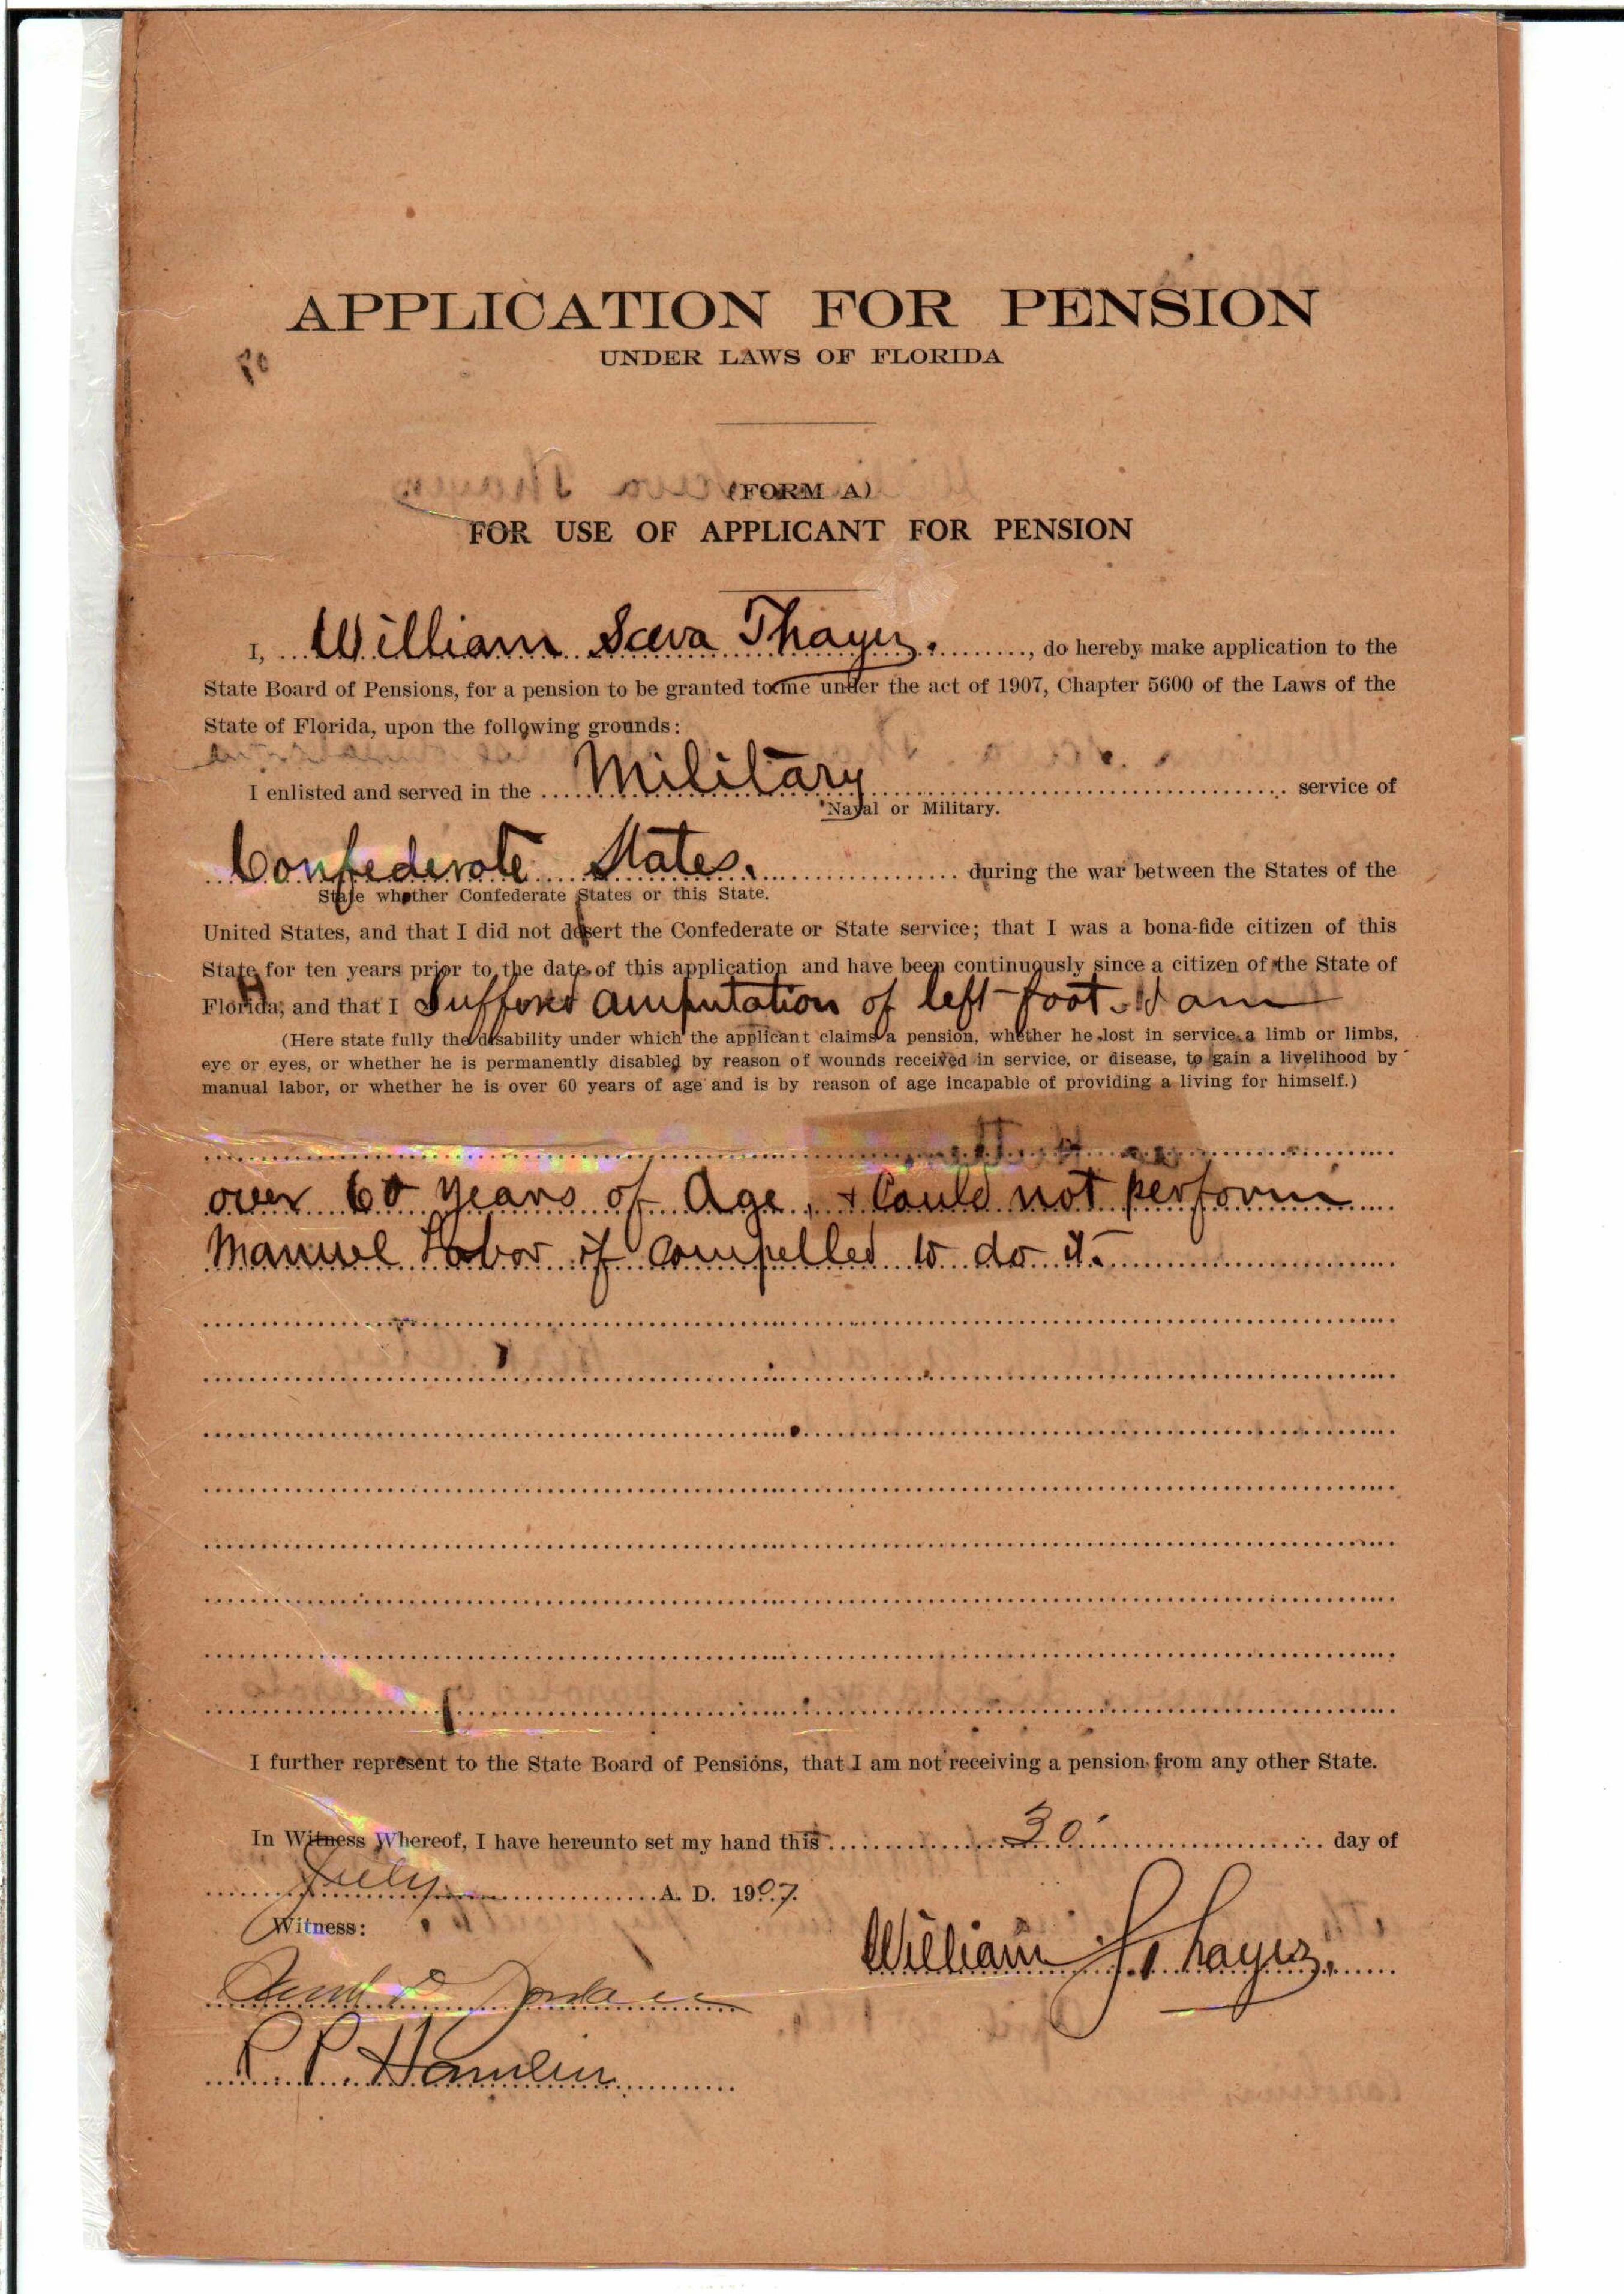 APPLICATION FOR PENSION
UNDER LAWS OF FLORIDA
(FORM A)
FOR USE OF APPLICANT FOR PENSION
I, William Sceva Thayer. , do hereby make application to the
State Board of Pensions, for a pension to be granted to me under the act of 1907, Chapter 5600 of the Laws of the
State of Florida, upon the following grounds:
I enlisted and served in the Military service of
Naval or Military.
Confederate States. during the war between the States of the
State whether Confederate States or this State.
United States, and that I did not desert the Confederate or State service; that I was a bona-fide citizen of this
State for ten years prior to the date of this application and have been continuously since a citizen of the State of
Florida; and that I Suffered amputation of left foot. I am
(Here state fully the disability under which the applicant claims a pension, whether he lost in service a limb or limbs,
eye or eyes, or whether he is permanently disabled by reason of wounds received in service, or disease, to gain a livelihood by
manual labor, or whether he is over 60 years of age and is by reason of age incapable of providing a living for himself.)
over 60 years of Age, + Could not perform
Manuel Labor if compelled to do it.
I further represent to the State Board of Pensions, that I am not receiving a pension from any other State.
In Witness Whereof, I have hereunto set my hand this 30 day of
July A. D. 1907.
Witness:
William S. Thayer.
P. P. Hamlin